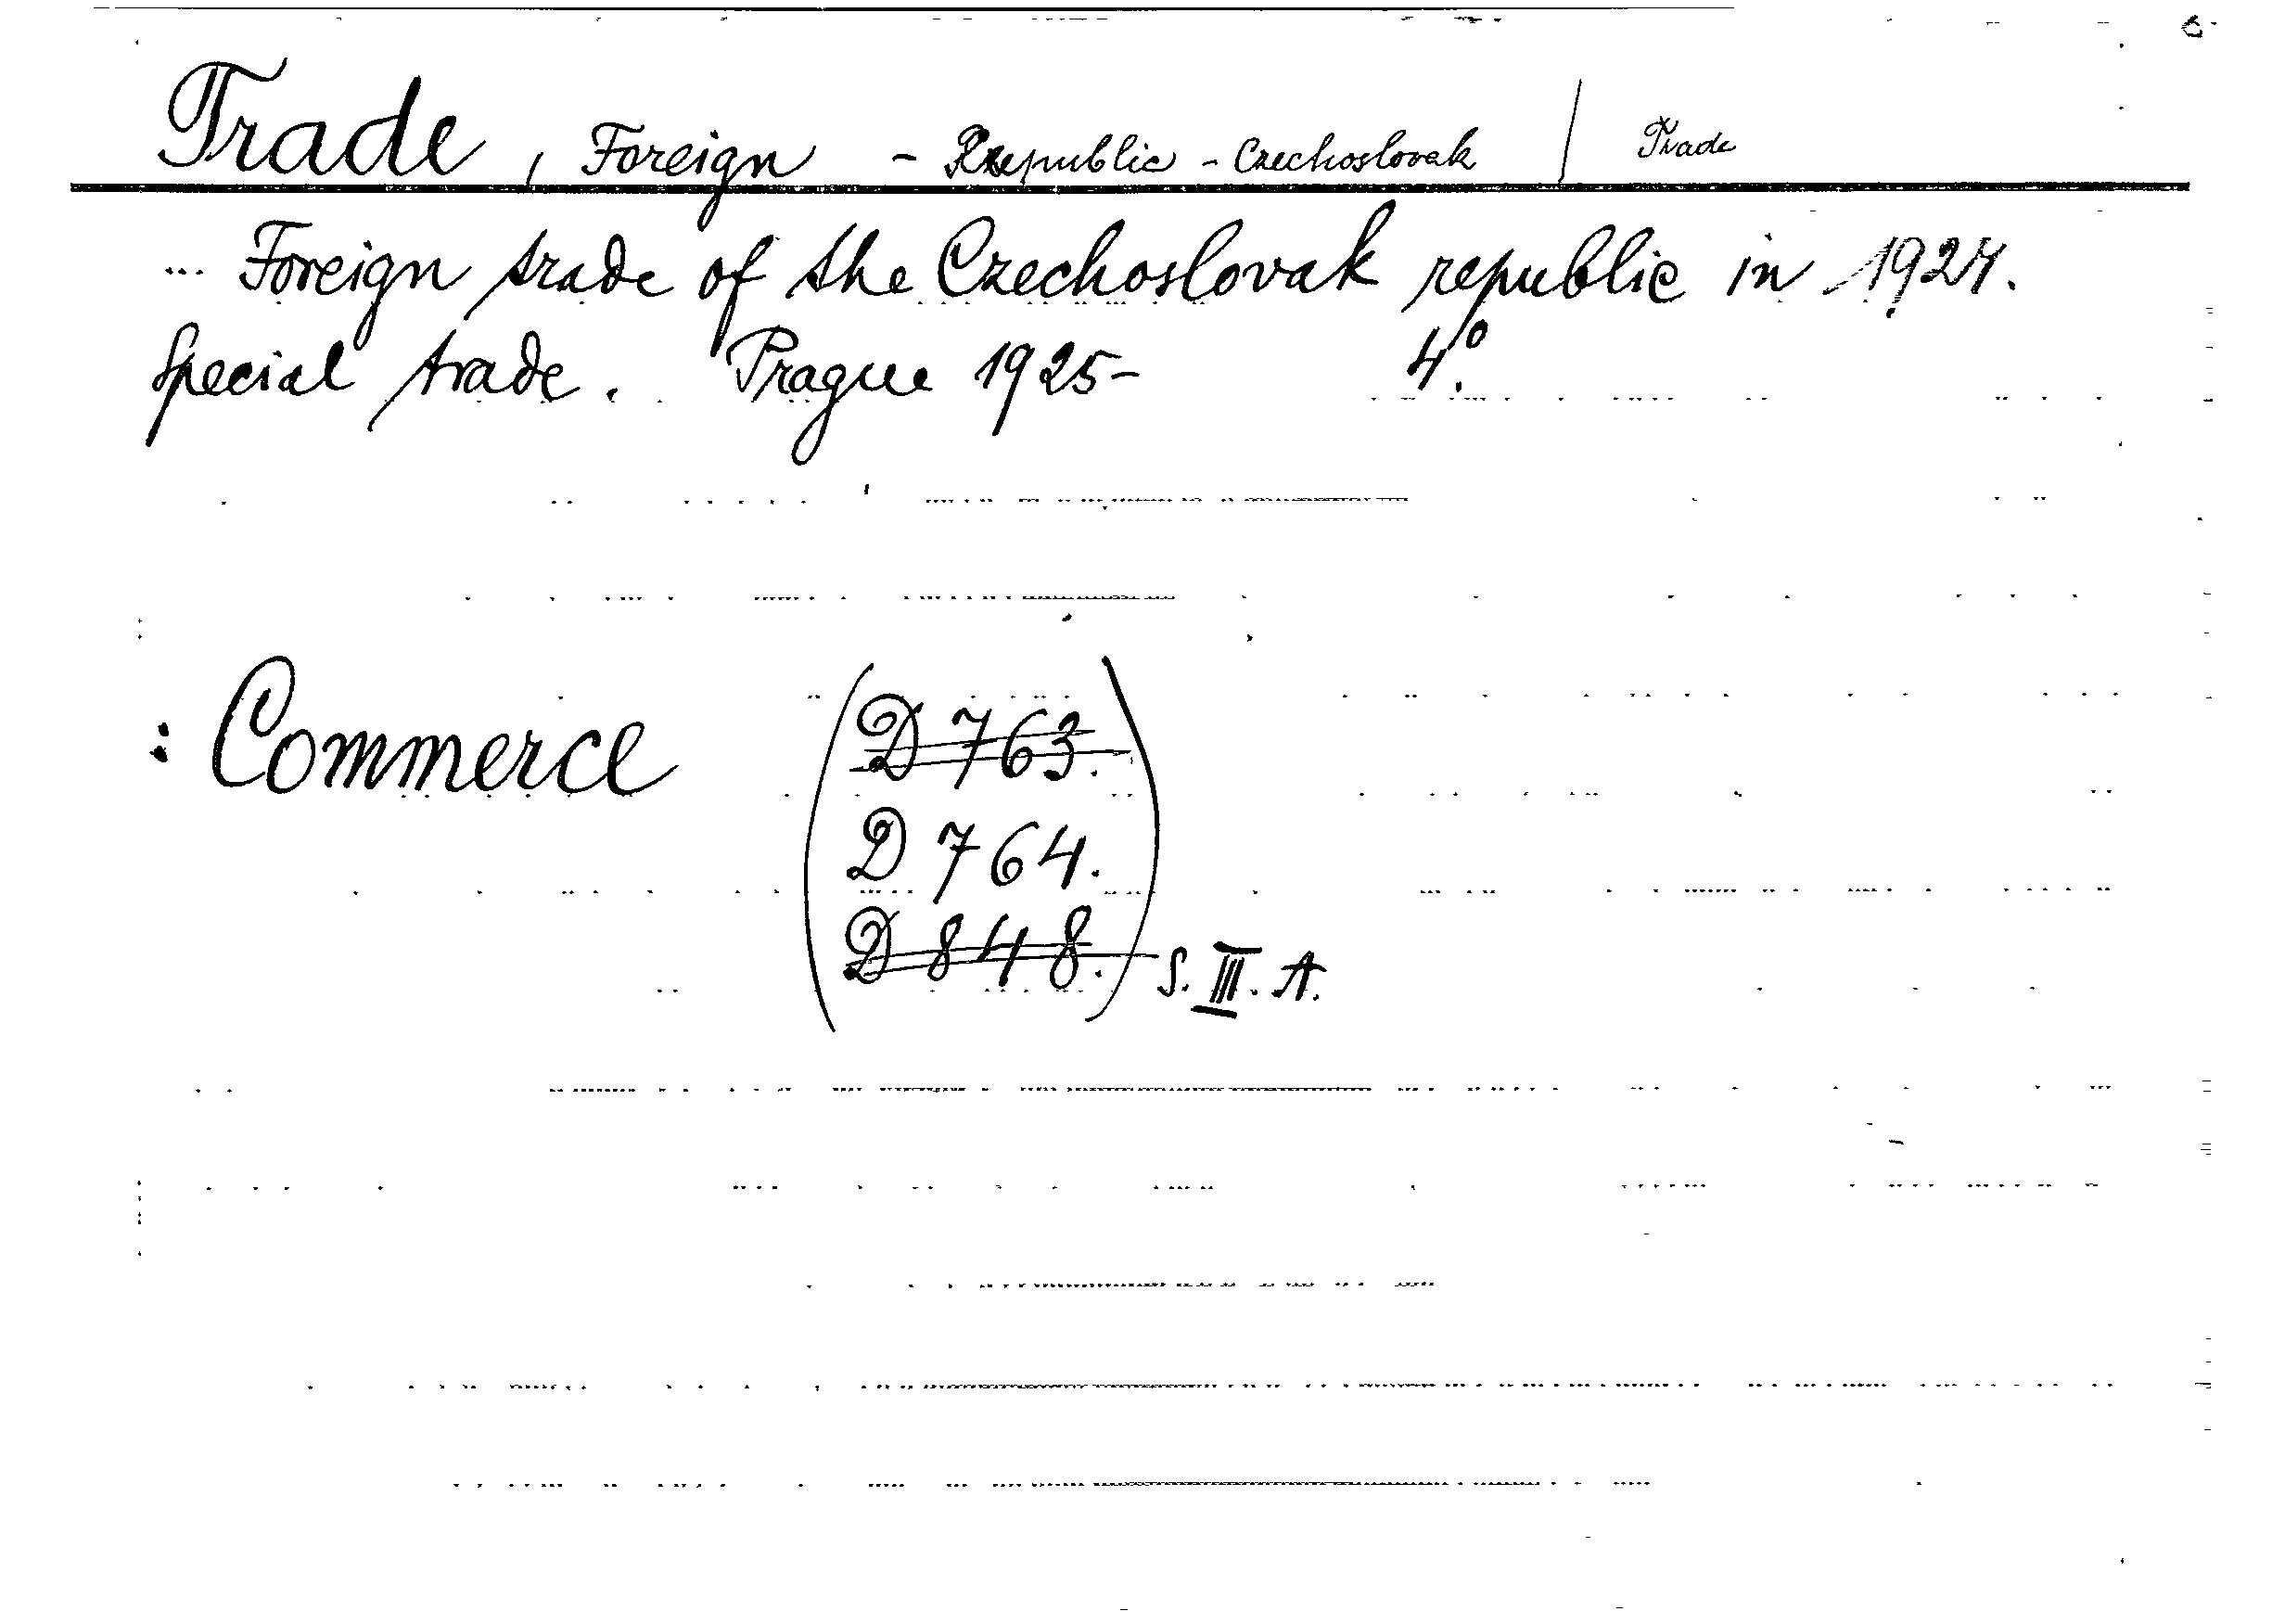 Trade, Foreign - Republic - Czechoslovak | Trade
... Foreign trade of the Czechoslovak republic in 1924.
Special trade. Prague 1925- 4°.
: Commerce (D 763.
D 764.
D 848.) S. III. A.